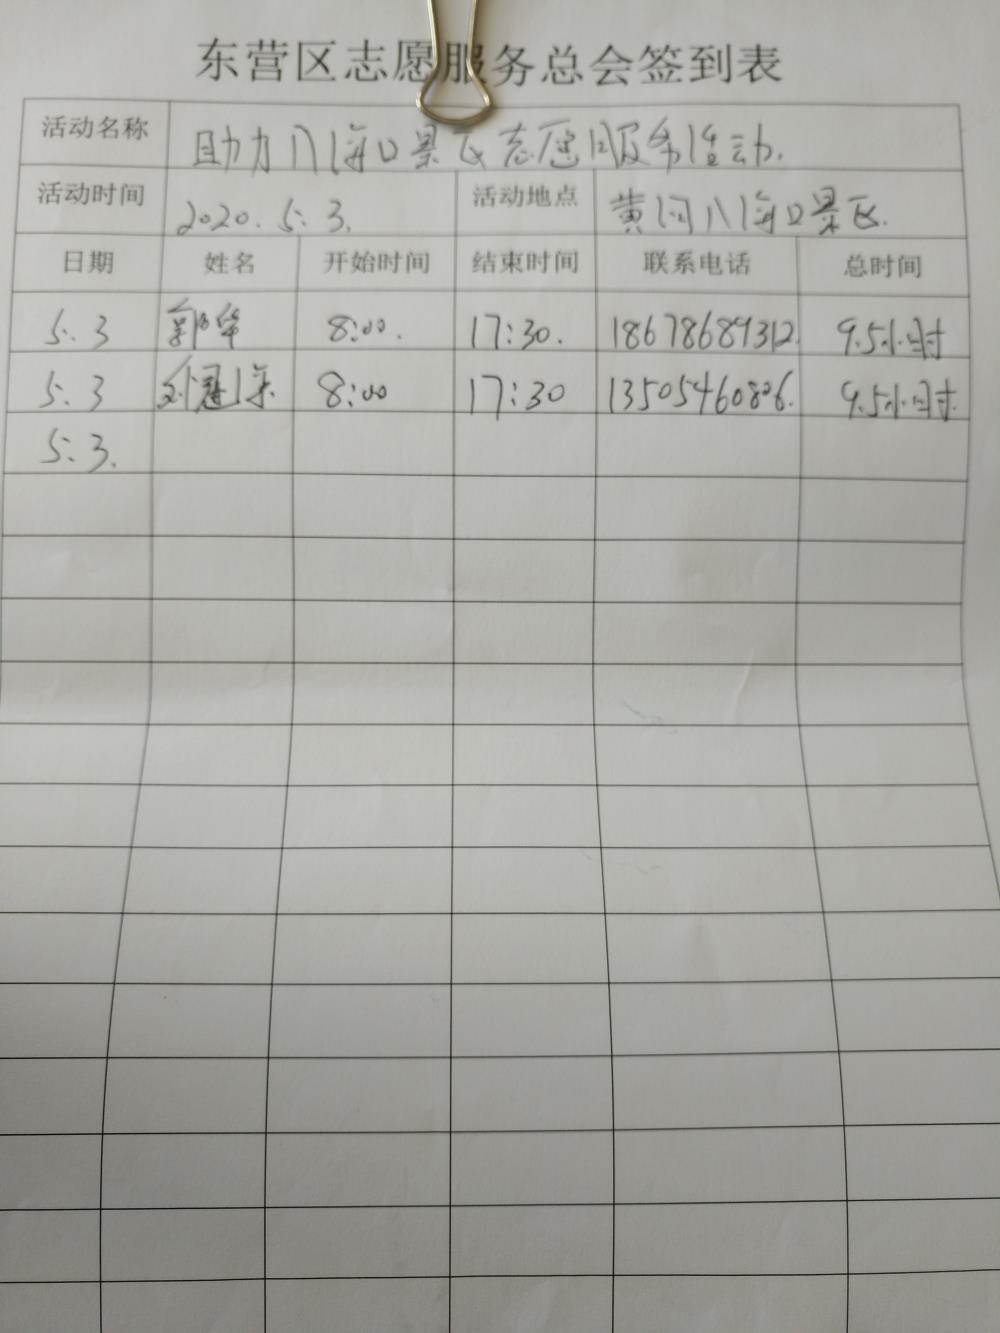 东营区志愿服务总会签到表
活动名称 助力入海口景区志愿服务活动.
活动时间 2020.5.3. 活动地点 黄河入海口景区.
日期 姓名 开始时间 结束时间 联系电话 总时间
5.3 郭华 8:00. 17:30. 18678689312. 9.5小时
5.3 刘 8:00 17:30 13505460806. 9.5小时.
5.3.